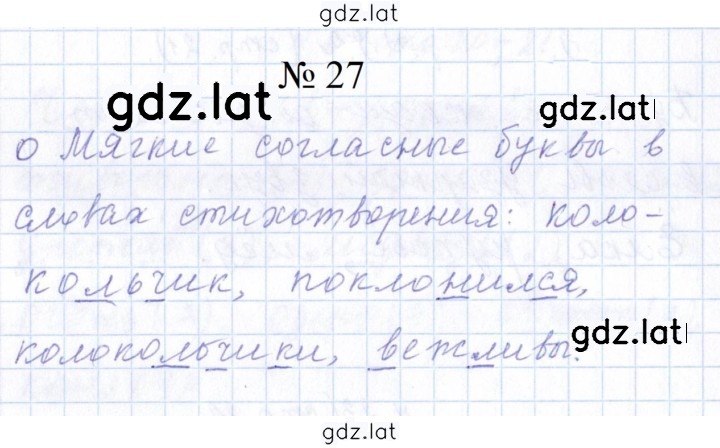 gdz.lat
№ 27
gdz.lat gdz.lat
о Мягкие согласные буквы в
словах стихотворения: коло-
кольчик, поклонился,
gdz.lat
колокольчики, вежливы.
gdz.lat